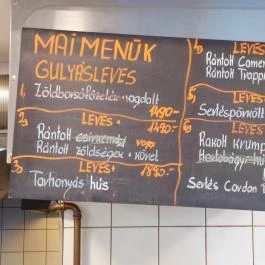 MAI MENÜK
GULYÁSLEVES
1, Zöldborsófőzelék vagdalt
1490.-
2, LEVES + 1490.-
Rántott csirkemell vagy
Rántott zöldségek + köret
3, LEVES + 1890.-
Tarhonyás hús
4, LEVES
Rántott Camem
Rántott Trappi
5, LEVES
Sertéspörkölt
6, LEVES
Rakott krump
Sertés Cordon B